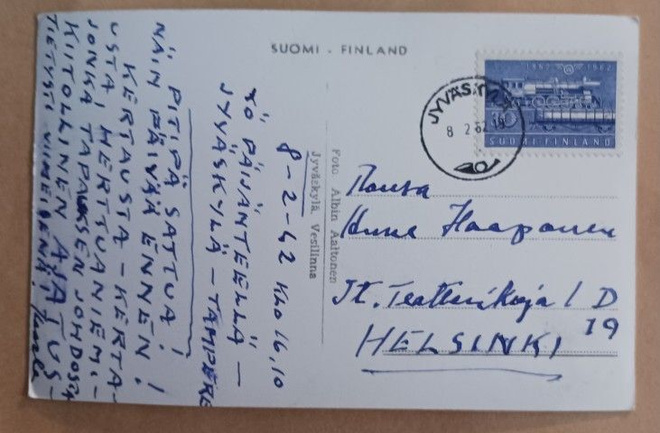 SUOMI - FINLAND
8-2-62 Klo 16,10
YÖ PÄIJÄNTEELLÄ —
JYVÄSKYLÄ — TAMPERE
PITIPÄ SATTUA!
NÄIN PÄIVÄÄ ENNEN!
KERTAUSTA - KERTA-
USTA! HERTTUANIEMI-
JONKA TAPAUKSEN JOHDOSTA
KIITOLLINEN AJATUS-
TIETYSTI VIIMEISENÄ!
Jyväskylä, Vesilinna
Foto Albin Aaltonen
JYVÄSKYLÄ
8 2 62
1862 1962
SUOMI FINLAND
Rouva
Haaponen
It. Teatterikuja 1 D
19
HELSINKI